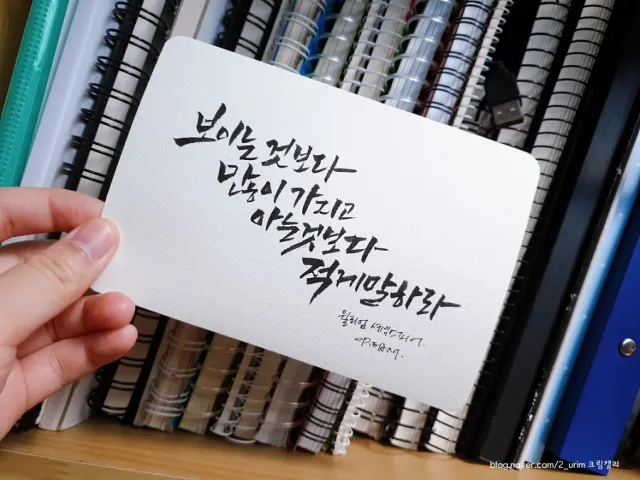 보이는 것보다
많이 가지고
아는것보다
적게말하라
윌리엄 셰익스피어.
blog.naver.com/2_urim 크림캘리